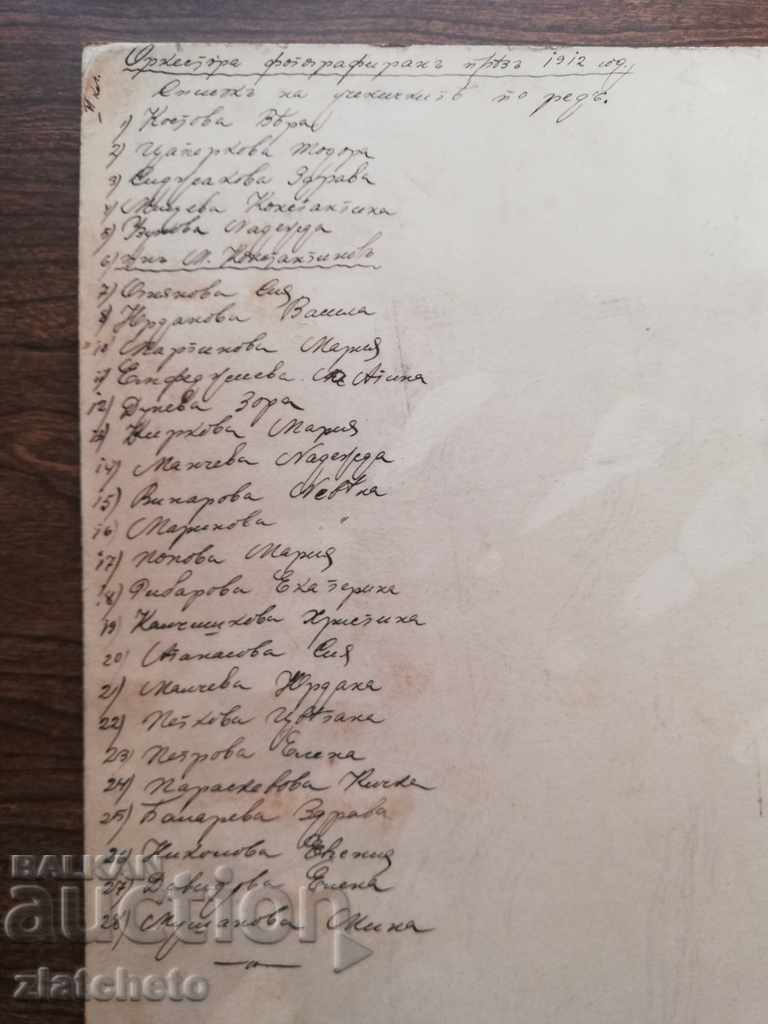 Оркестра фотографиранъ прѣзъ 1912 год.,
Списъкъ на ученичкитѣ по редъ.
1) Костова Вѣра
2) Цапаркова Тодора
3) Сиджакова Здрава
4) Константина
5) Надежда
6) М. Константиновъ
7) Огнянова Сия
8) Юрданова Васила
10 Мартинова Мария
11) Атина
12) Дунева Зора
13) Киркова Мария
14) Манчева Надежда
15) Винарова Невѣна
16) Маринова "
17) Попова Мария
18) Рибарова Екатерина
19) Калчишкова Христина
20) Атанасова Сия
21) Малчева Юрдана
22) Петкова Цвѣтана
23) Петрова Елена
24) Параскевова Кичка
25) Баларева Здрава
26) Николова Евгения
27) Давидова Елена
28) Мушанова Мина
BALKAN
auction
zlatcheto